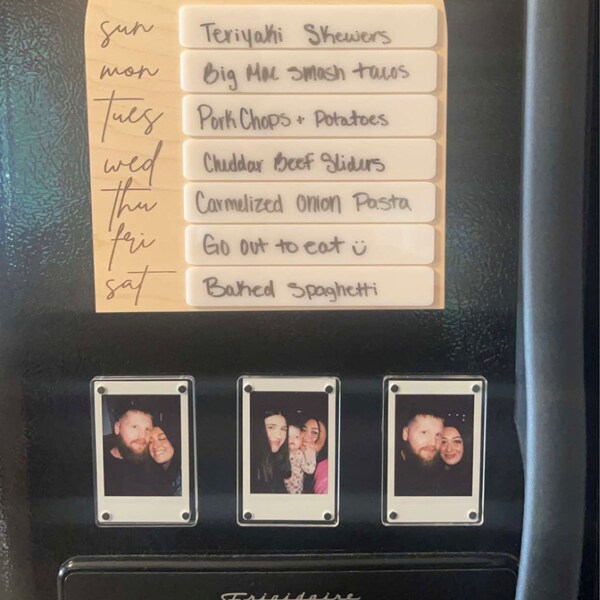 sun Teriyaki Skewers
mon Big Mac smash tacos
Tues Pork Chops + Potatoes
wed Cheddar Beef Sliders
thu Carmelized Onion Pasta
fri Go out to eat
sat Baked Spaghetti
Frigidaire